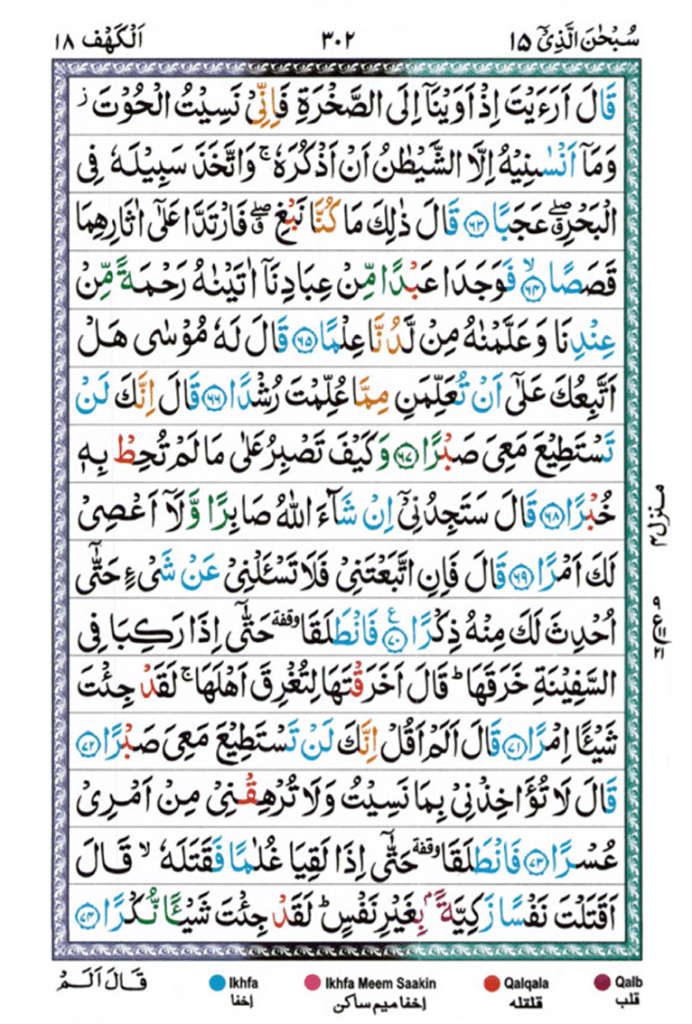 سُبْحٰنَ الَّذِیْۤ ۱۵ ۳۰۲ اَلْكَهْف ۱۸
قَالَ اَرَءَیْتَ اِذْ اَوَیْنَاۤ اِلَی الصَّخْرَةِ فَاِنِّیْ نَسِیْتُ الْحُوْتَ ؗ
وَمَاۤ اَنْسٰىنِیْهُ اِلَّا الشَّیْطٰنُ اَنْ اَذْكُرَهٗ ۚ وَاتَّخَذَ سَبِیْلَهٗ فِی
الْبَحْرِ ۖۗ عَجَبًا ۶۳ قَالَ ذٰلِكَ مَا كُنَّا نَبْغِ ۖۗ فَارْتَدَّا عَلٰۤی اٰثَارِهِمَا
قَصَصًا ۙ ۶۴ فَوَجَدَا عَبْدًا مِّنْ عِبَادِنَاۤ اٰتَیْنٰهُ رَحْمَةً مِّنْ
عِنْدِنَا وَعَلَّمْنٰهُ مِنْ لَّدُنَّا عِلْمًا ۶۵ قَالَ لَهٗ مُوْسٰی هَلْ
اَتَّبِعُكَ عَلٰۤی اَنْ تُعَلِّمَنِ مِمَّا عُلِّمْتَ رُشْدًا ۶۶ قَالَ اِنَّكَ لَنْ
تَسْتَطِیْعَ مَعِیَ صَبْرًا ۶۷ وَكَیْفَ تَصْبِرُ عَلٰی مَا لَمْ تُحِطْ بِهٖ
خُبْرًا ۶۸ قَالَ سَتَجِدُنِیْۤ اِنْ شَآءَ اللّٰهُ صَابِرًا وَّلَاۤ اَعْصِیْ
لَكَ اَمْرًا ۶۹ قَالَ فَاِنِ اتَّبَعْتَنِیْ فَلَا تَسْـَٔلْنِیْ عَنْ شَیْءٍ حَتّٰۤی
اُحْدِثَ لَكَ مِنْهُ ذِكْرًا ۷۰ ع فَانْطَلَقَا وقفة حَتّٰۤی اِذَا رَكِبَا فِی
السَّفِیْنَةِ خَرَقَهَا ؕ قَالَ اَخَرَقْتَهَا لِتُغْرِقَ اَهْلَهَا ۚ لَقَدْ جِئْتَ
شَیْـًٔا اِمْرًا ۷۱ قَالَ اَلَمْ اَقُلْ اِنَّكَ لَنْ تَسْتَطِیْعَ مَعِیَ صَبْرًا ۷۲
قَالَ لَا تُؤَاخِذْنِیْ بِمَا نَسِیْتُ وَلَا تُرْهِقْنِیْ مِنْ اَمْرِیْ
عُسْرًا ۷۳ فَانْطَلَقَا وقفة حَتّٰۤی اِذَا لَقِیَا غُلٰمًا فَقَتَلَهٗ ۙ قَالَ
اَقَتَلْتَ نَفْسًا زَكِیَّةًۢ بِغَیْرِ نَفْسٍ ؕ لَقَدْ جِئْتَ شَیْـًٔا نُّكْرًا ۷۴
منزل ۴
قَالَ اَلَمْ
Ikhfa Ikhfa Meem Saakin Qalqala Qalb
اخفا اخفا میم ساکن قلقله قلب